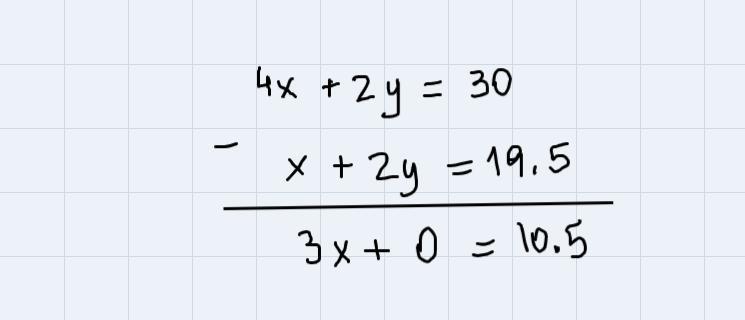 4x + 2y = 30
- x + 2y = 19.5
3x + 0 = 10.5